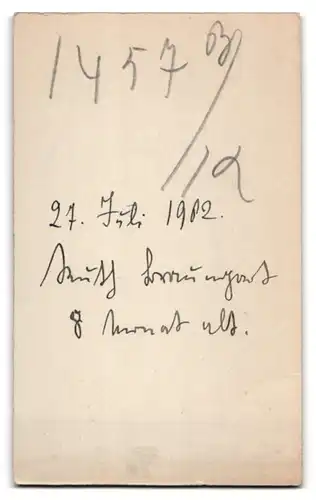 1457 B/12
27. Juli 1902.
8 Monat alt.